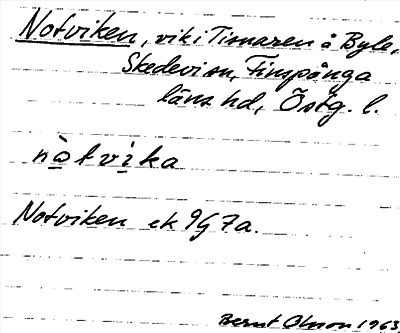 Notviken, vik i Tisnaren å Byle,
Skedevi sn, Finspånga
läns hd, Östg. l.
nòtvika
Notviken ek 9G 7a.
Bernt Olsson 1963